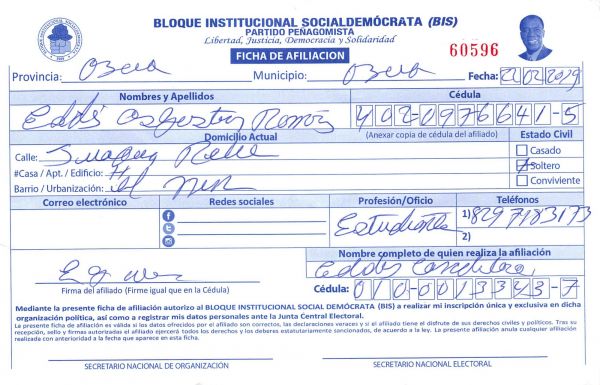 BLOQUE INSTITUCIONAL SOCIALDEMÓCRATA (BIS)
PARTIDO PEÑAGOMISTA
Libertad, Justicia, Democracia y Solidaridad
FICHA DE AFILIACION
60596
Provincia: Municipio: Fecha:
Nombres y Apellidos Cédula
Ramón 402-0976641-5
Domicilio Actual (Anexar copia de cédula del afiliado) Estado Civil
Calle: Casado
#Casa / Apt. / Edificio: Soltero
Barrio / Urbanización: Conviviente
Correo electrónico Redes sociales Profesión/Oficio Teléfonos
Estudiante 1) 8297183173
2)
Nombre completo de quien realiza la afiliación
Firma del afiliado (Firme igual que en la Cédula) Cédula: 010-0013343-7
Mediante la presente ficha de afiliación autorizo al BLOQUE INSTITUCIONAL SOCIAL DEMÓCRATA (BIS) a realizar mi inscripción única y exclusiva en dicha
organización política, así como a registrar mis datos personales ante la Junta Central Electoral.
La presente ficha de afiliación es válida si los datos ofrecidos por el afiliado son correctos, las declaraciones veraces y si el afiliado tiene el disfrute de sus derechos civiles y políticos. Tras su
recepción, sello y firmas autorizadas el afiliado ejercerá todos los derechos y los deberes estatutariamente sancionados, de acuerdo a la ley. La presente afiliación anula cualquier afiliación
realizada con anterioridad a la fecha que aparece en esta ficha.
SECRETARIO NACIONAL DE ORGANIZACIÓN SECRETARIO NACIONAL ELECTORAL